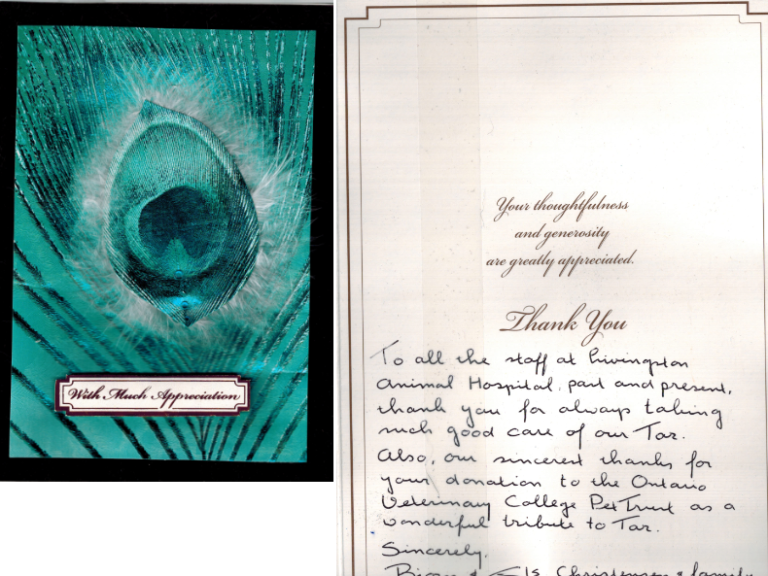 With Much Appreciation
Your thoughtfulness
and generosity
are greatly appreciated.
Thank You
To all the staff at Livingston
Animal Hospital, past and present,
thank you for always taking
such good care of our Tar.
Also, our sincerest thanks for
your donation to the Ontario
Veterinary College Pet Trust as a
wonderful tribute to Tar.
Sincerely,
Christensen & family